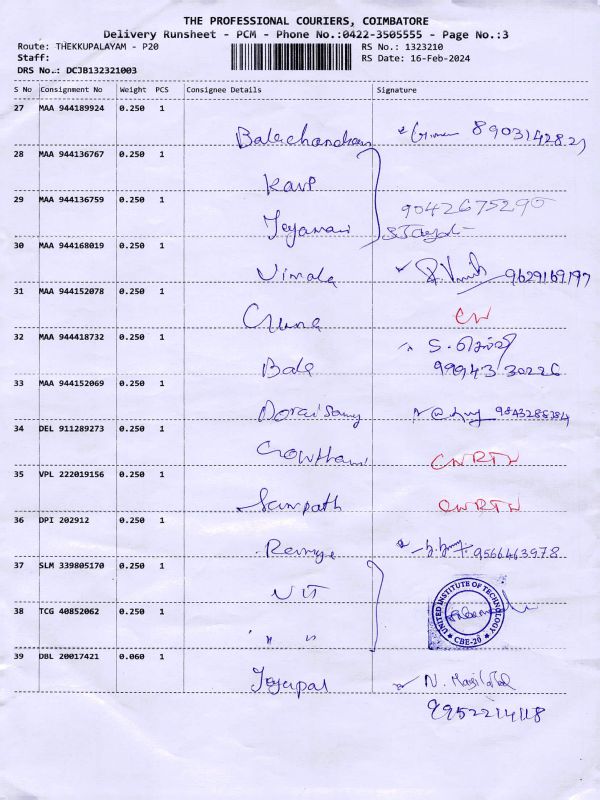 THE PROFESSIONAL COURIERS, COIMBATORE
Delivery Runsheet - PCM - Phone No.:0422-3505555 - Page No.:3
Route: THEKKUPALAYAM - P20 RS No.: 1323210
Staff: RS Date: 16-Feb-2024
DRS No.: DCJB132321003
S No Consignment No Weight PCS Consignee Details Signature
27 MAA 944189924 0.250 1
Balachandran
28 MAA 944136767 0.250 1
29 MAA 944136759 0.250 1
9042675290
30 MAA 944168019 0.250 1
Vimala 9629169197
31 MAA 944152078 0.250 1
32 MAA 944418732 0.250 1
Bala 99943 30226
33 MAA 944152069 0.250 1
Doraisamy
34 DEL 911289273 0.250 1
Gowtham CNRTN
35 VPL 222019156 0.250 1
Sampath CNRTN
36 DPI 202912 0.250 1
Ramya 9566463978
37 SLM 339805170 0.250 1
UIT
38 TCG 40852062 0.250 1
" "
UNITED INSTITUTE OF TECHNOLOGY
CBE-20
39 DBL 20017421 0.060 1
Jeyapal
9952214118